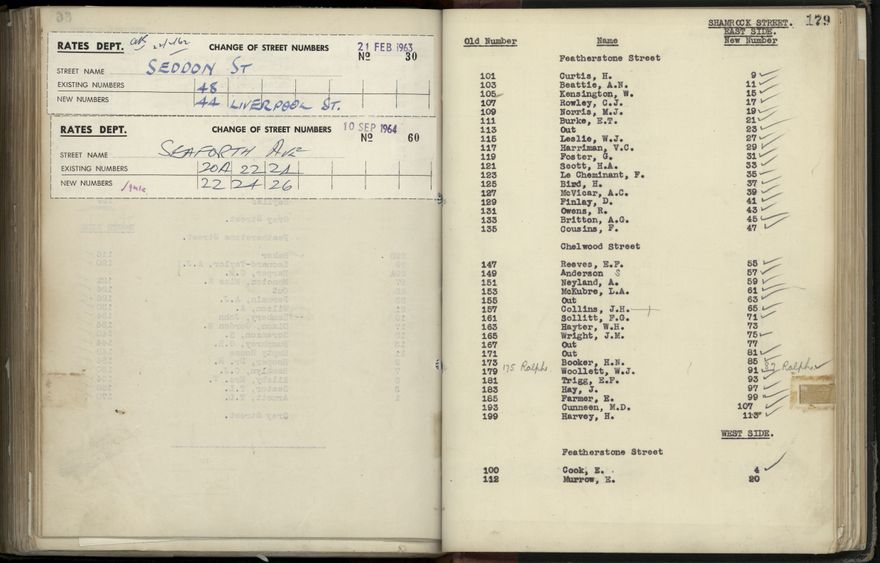 RATES DEPT. CHANGE OF STREET NUMBERS 21 FEB 1963
Nº 30
STREET NAME SEDDON ST
EXISTING NUMBERS 48
NEW NUMBERS 44 LIVERPOOL ST.
RATES DEPT. CHANGE OF STREET NUMBERS 10 SEP 1964
Nº 60
STREET NAME SEAFORTH AVE
EXISTING NUMBERS 20A 22 24
NEW NUMBERS 22 24 26
SHAMROCK STREET. 179
EAST SIDE.
Old Number Name New Number
Featherstone Street
101 Curtis, H. 9
103 Beattie, A.N. 11
105 Kensington, W. 15
107 Rowley, C.J. 17
109 Norris, M.J. 19
111 Burke, E.T. 21
113 Out 23
115 Leslie, W.J. 27
117 Harriman, V.C. 29
119 Foster, G. 31
121 Scott, H.A. 33
123 Le Cheminant, F. 35
125 Bird, H. 37
127 McVicar, A.C. 39
129 Finlay, D. 41
131 Owens, R. 43
133 Britton, A.G. 45
135 Cousins, F. 47
Chelwood Street
147 Reeves, E.F. 55
149 Anderson S 57
151 Neyland, A. 59
153 McKubre, L.A. 61
155 Out 63
157 Collins, J.H. 65
161 Sollitt, F.G. 71
163 Hayter, W.H. 73
165 Wright, J.M. 75
167 Out 77
171 Out 81
173 Booker, H.N. 85
175 Ralphs 87 Ralphs
179 Woollett, W.J. 91
181 Trigg, E.F. 93
183 Hay, J. 97
185 Farmer, E. 99
193 Cunneen, M.D. 107
199 Harvey, H. 113
WEST SIDE.
Featherstone Street
100 Cook, E. 4
112 Murrow, E. 20